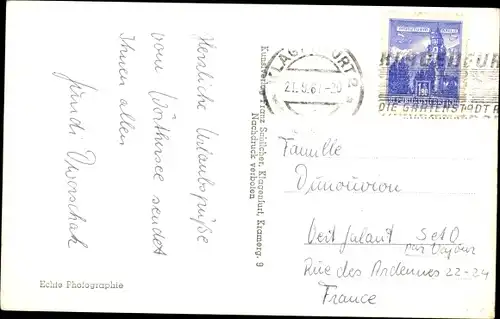 Herzliche Urlaubsgrüße
vom Wörthersee sendet
Ihnen allen
Echte Photographie
Kunstverlag Franz Schilcher, Klagenfurt, Kramerg. 9
Nachdruck verboten
KLAGENFURT 2
KLAGENFURT
DIE GARTENSTADT
Famille
Dunouvion
Seto
Rue des Ardennes 22-24
France